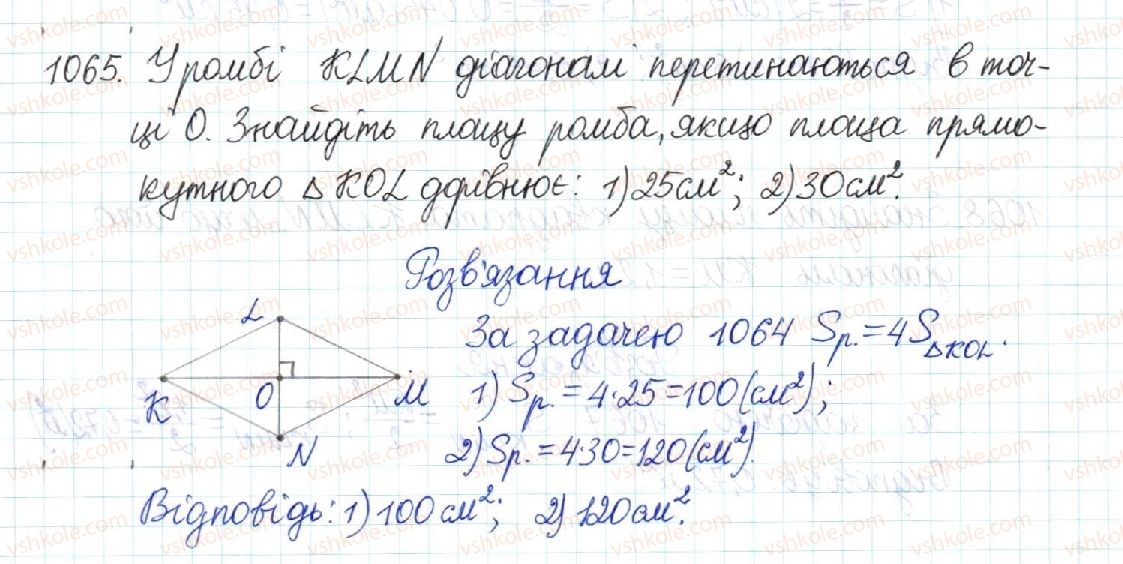 1065. У ромбі KLMN діагоналі перетинаються в точ-
ці О. Знайдіть площу ромба, якщо площа прямо-
кутного △ KOL дорівнює: 1) 25 см²; 2) 30 см².
Розв'язання
За задачею 1064 Sр. = 4S△KOL.
L
K
O
M
N
1) Sр. = 4·25 = 100 (см²);
2) Sр. = 4·30 = 120 (см²).
Відповідь: 1) 100 см²; 2) 120 см².
vshkole.com